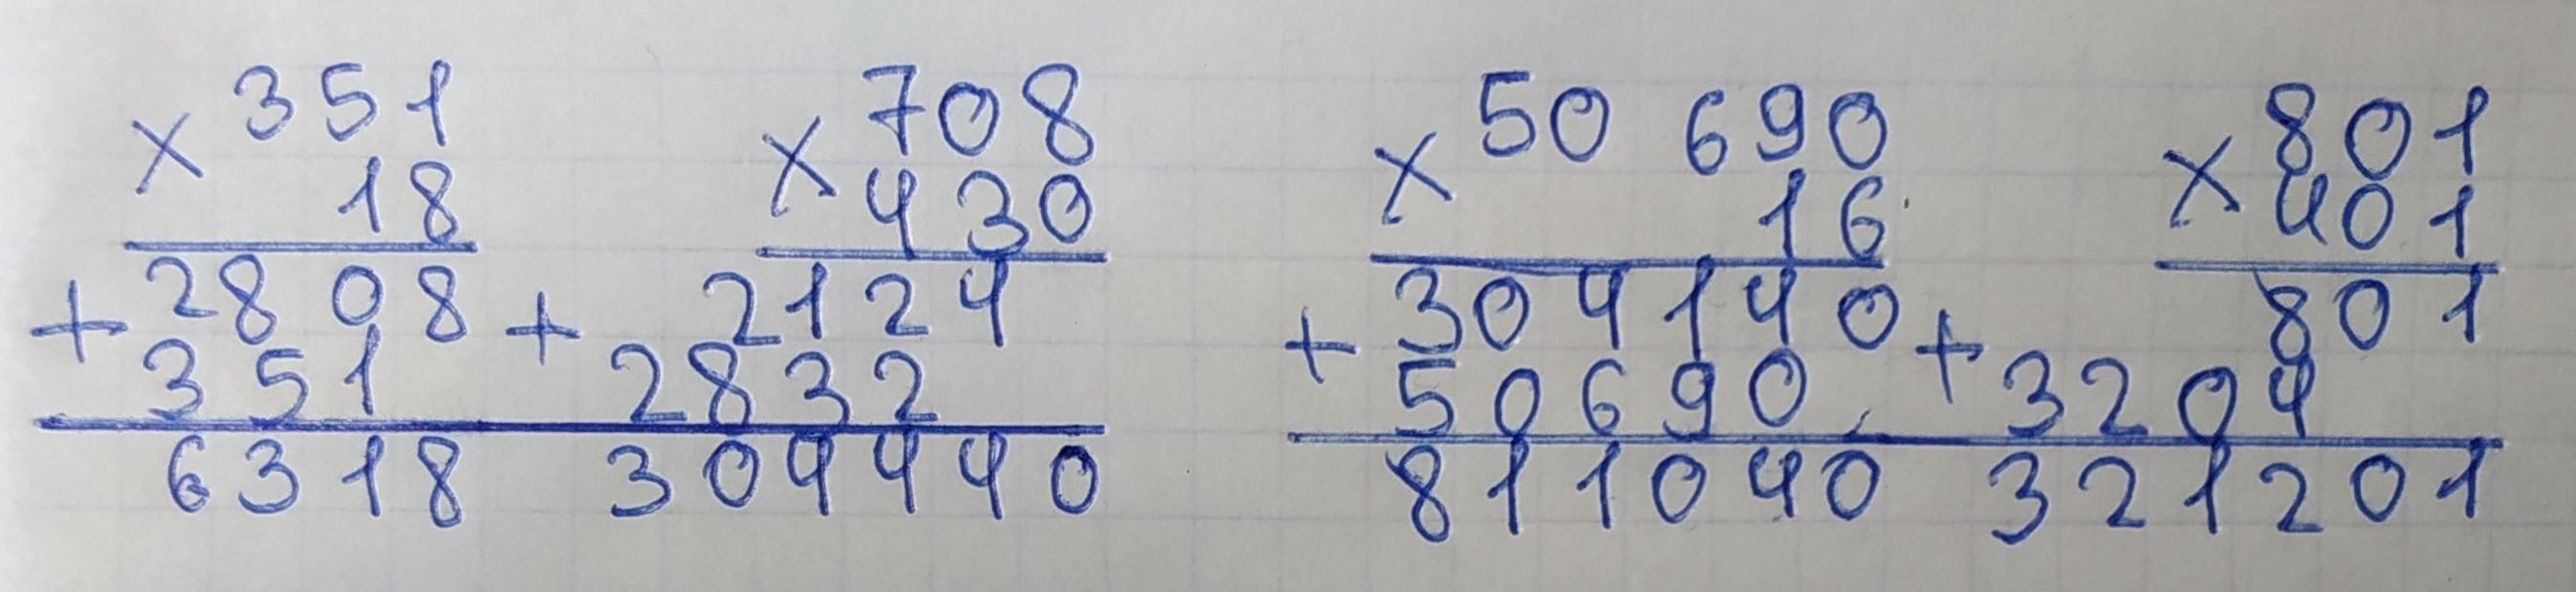 × 351
18
+ 2808
351
6318
× 708
430
+ 2124
2832
304440
× 50 690
16
+ 304140
50690
811040
× 801
401
+ 801
3204
321201